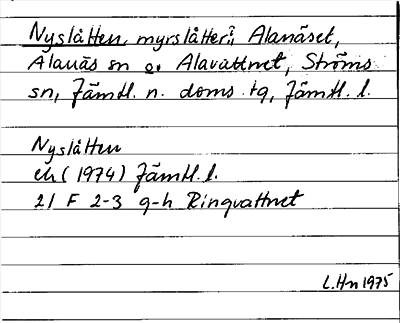 Nyslåtten, myrslåtter i Alanäset,
Alanäs sn o. Alavattnet, Ströms
sn, Jämtl. n. doms. tg, Jämtl. l.
Nyslåtten
ek (1974) Jämtl. l.
21 F 2-3 g-h Ringvattnet
L. Hn 1975